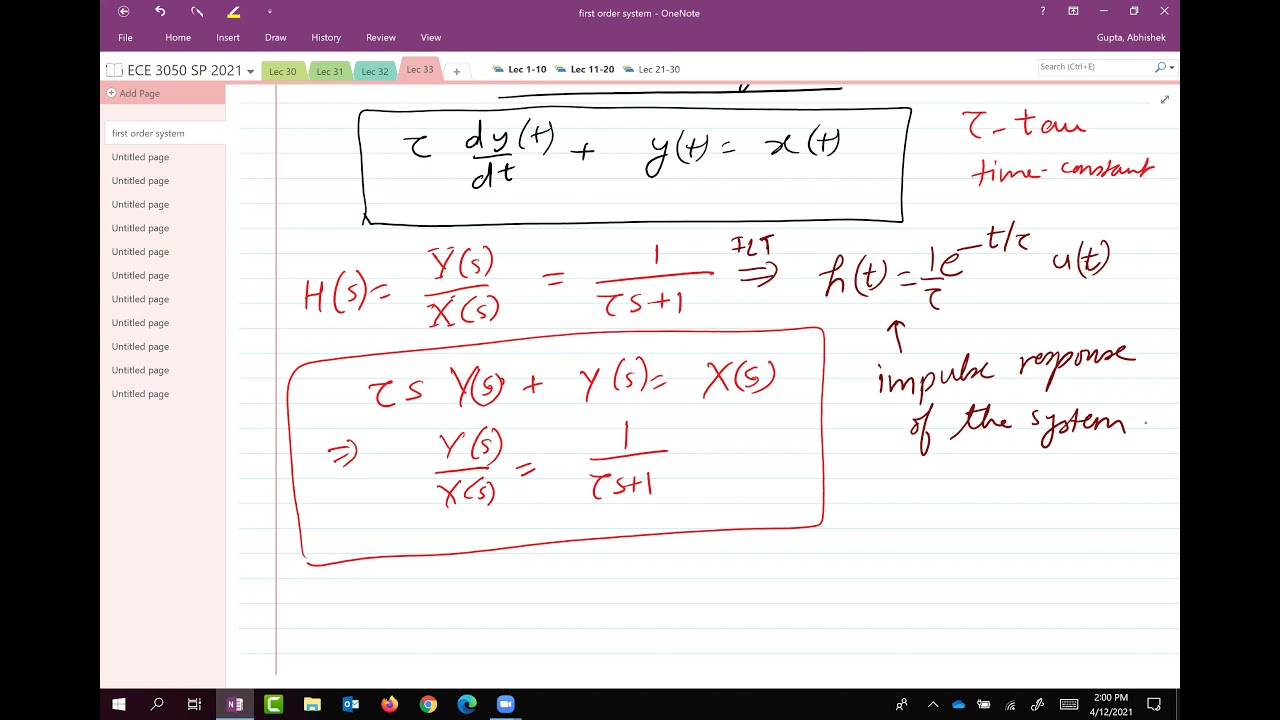 first order system - OneNote
?
File Home Insert Draw History Review View
Gupta, Abhishek
ECE 3050 SP 2021
Lec 30 Lec 31 Lec 32 Lec 33 +
Lec 1-10 Lec 11-20 Lec 21-30
Search (Ctrl+E)
Add Page
first order system
Untitled page
Untitled page
Untitled page
Untitled page
Untitled page
Untitled page
Untitled page
Untitled page
Untitled page
Untitled page
Untitled page
τ dy(t)/dt + y(t) = x(t)
τ - tau
time-constant
H(s) = Y(s)/X(s) = 1/(τs+1) ILT ⇒ h(t) = 1/τ e^(-t/τ) u(t)
↑
impulse response
of the system.
τs Y(s) + Y(s) = X(s)
⇒ Y(s)/X(s) = 1/(τs+1)
2:00 PM
4/12/2021